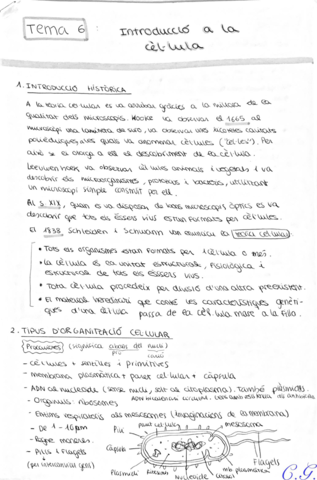 Tema 6:
Introducció a la
cèl·lula
1. INTRODUCCIÓ HISTÒRICA
A la teoria cel·lular es va arribar gràcies a la millora de la
qualitat dels microscopis. Hooke va observar el 1665 al
microscopi una làmineta de suro, va observar unes petites cavitats
polièdriques, a les quals va anomenar cèl·lules ("cel·les"). Per
això se li otorga a ell el descobriment de la cèl·lula.
Leeuwenhoek va observar cèl·lules animals i vegetals i va
descobrir els microorganismes, protozous i bacteris, utilitzant
un microscopi simple construït per ell.
AL S. XIX, quan es va disposar de bons microscopis òptics es va
descobrir que tots els éssers vius estan formats per cèl·lules.
El 1838, Schleiden i Schwann van enunciar la teoria cel·lular:
• Tots els organismes estan formats per 1 cèl·lula o més.
• La cèl·lula és la unitat estructural, fisiològica i
estructural de tots els éssers vius.
• Tota cèl·lula procedeix per divisió d'una altra preexistent.
• El material hereditari que conté les característiques genèti-
ques d'una cèl·lula passa de la cèl·lula mare a la filla.
2. TIPUS D'ORGANITZACIÓ CEL·LULAR
Procariotes (significa abans del nucli)
- Cèl·lules + senzilles i primitives
- membrana plasmàtica + paret cel·lular + càpsula
- Orgànuls: ribosomes
- De 1 - 10 µm
- Regne moneres.
- Pilis i Flagells
Pili
paret cel·lular
mesosoma
Càpsula
Plasmidi
Ribosom
Nucleoide
mb. plasmàtica
Flagell
C.G.